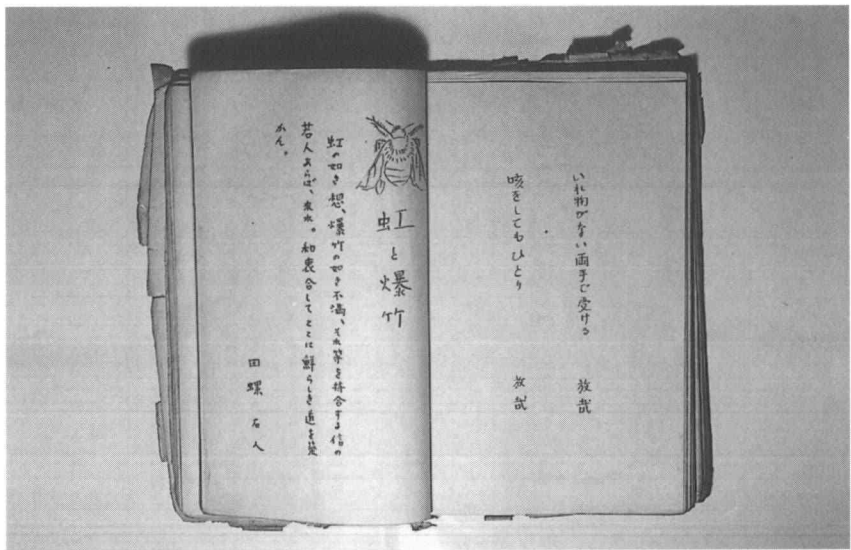 いれ物がない両手で受ける 放哉
咳をしてもひとり 放哉
虹と爆竹
虹の如き想、爆竹の如き不満、それ等を持合する信の
若人あらば、来れ。和衷合してここに鮮らしき道を築
かん。
田螺 人